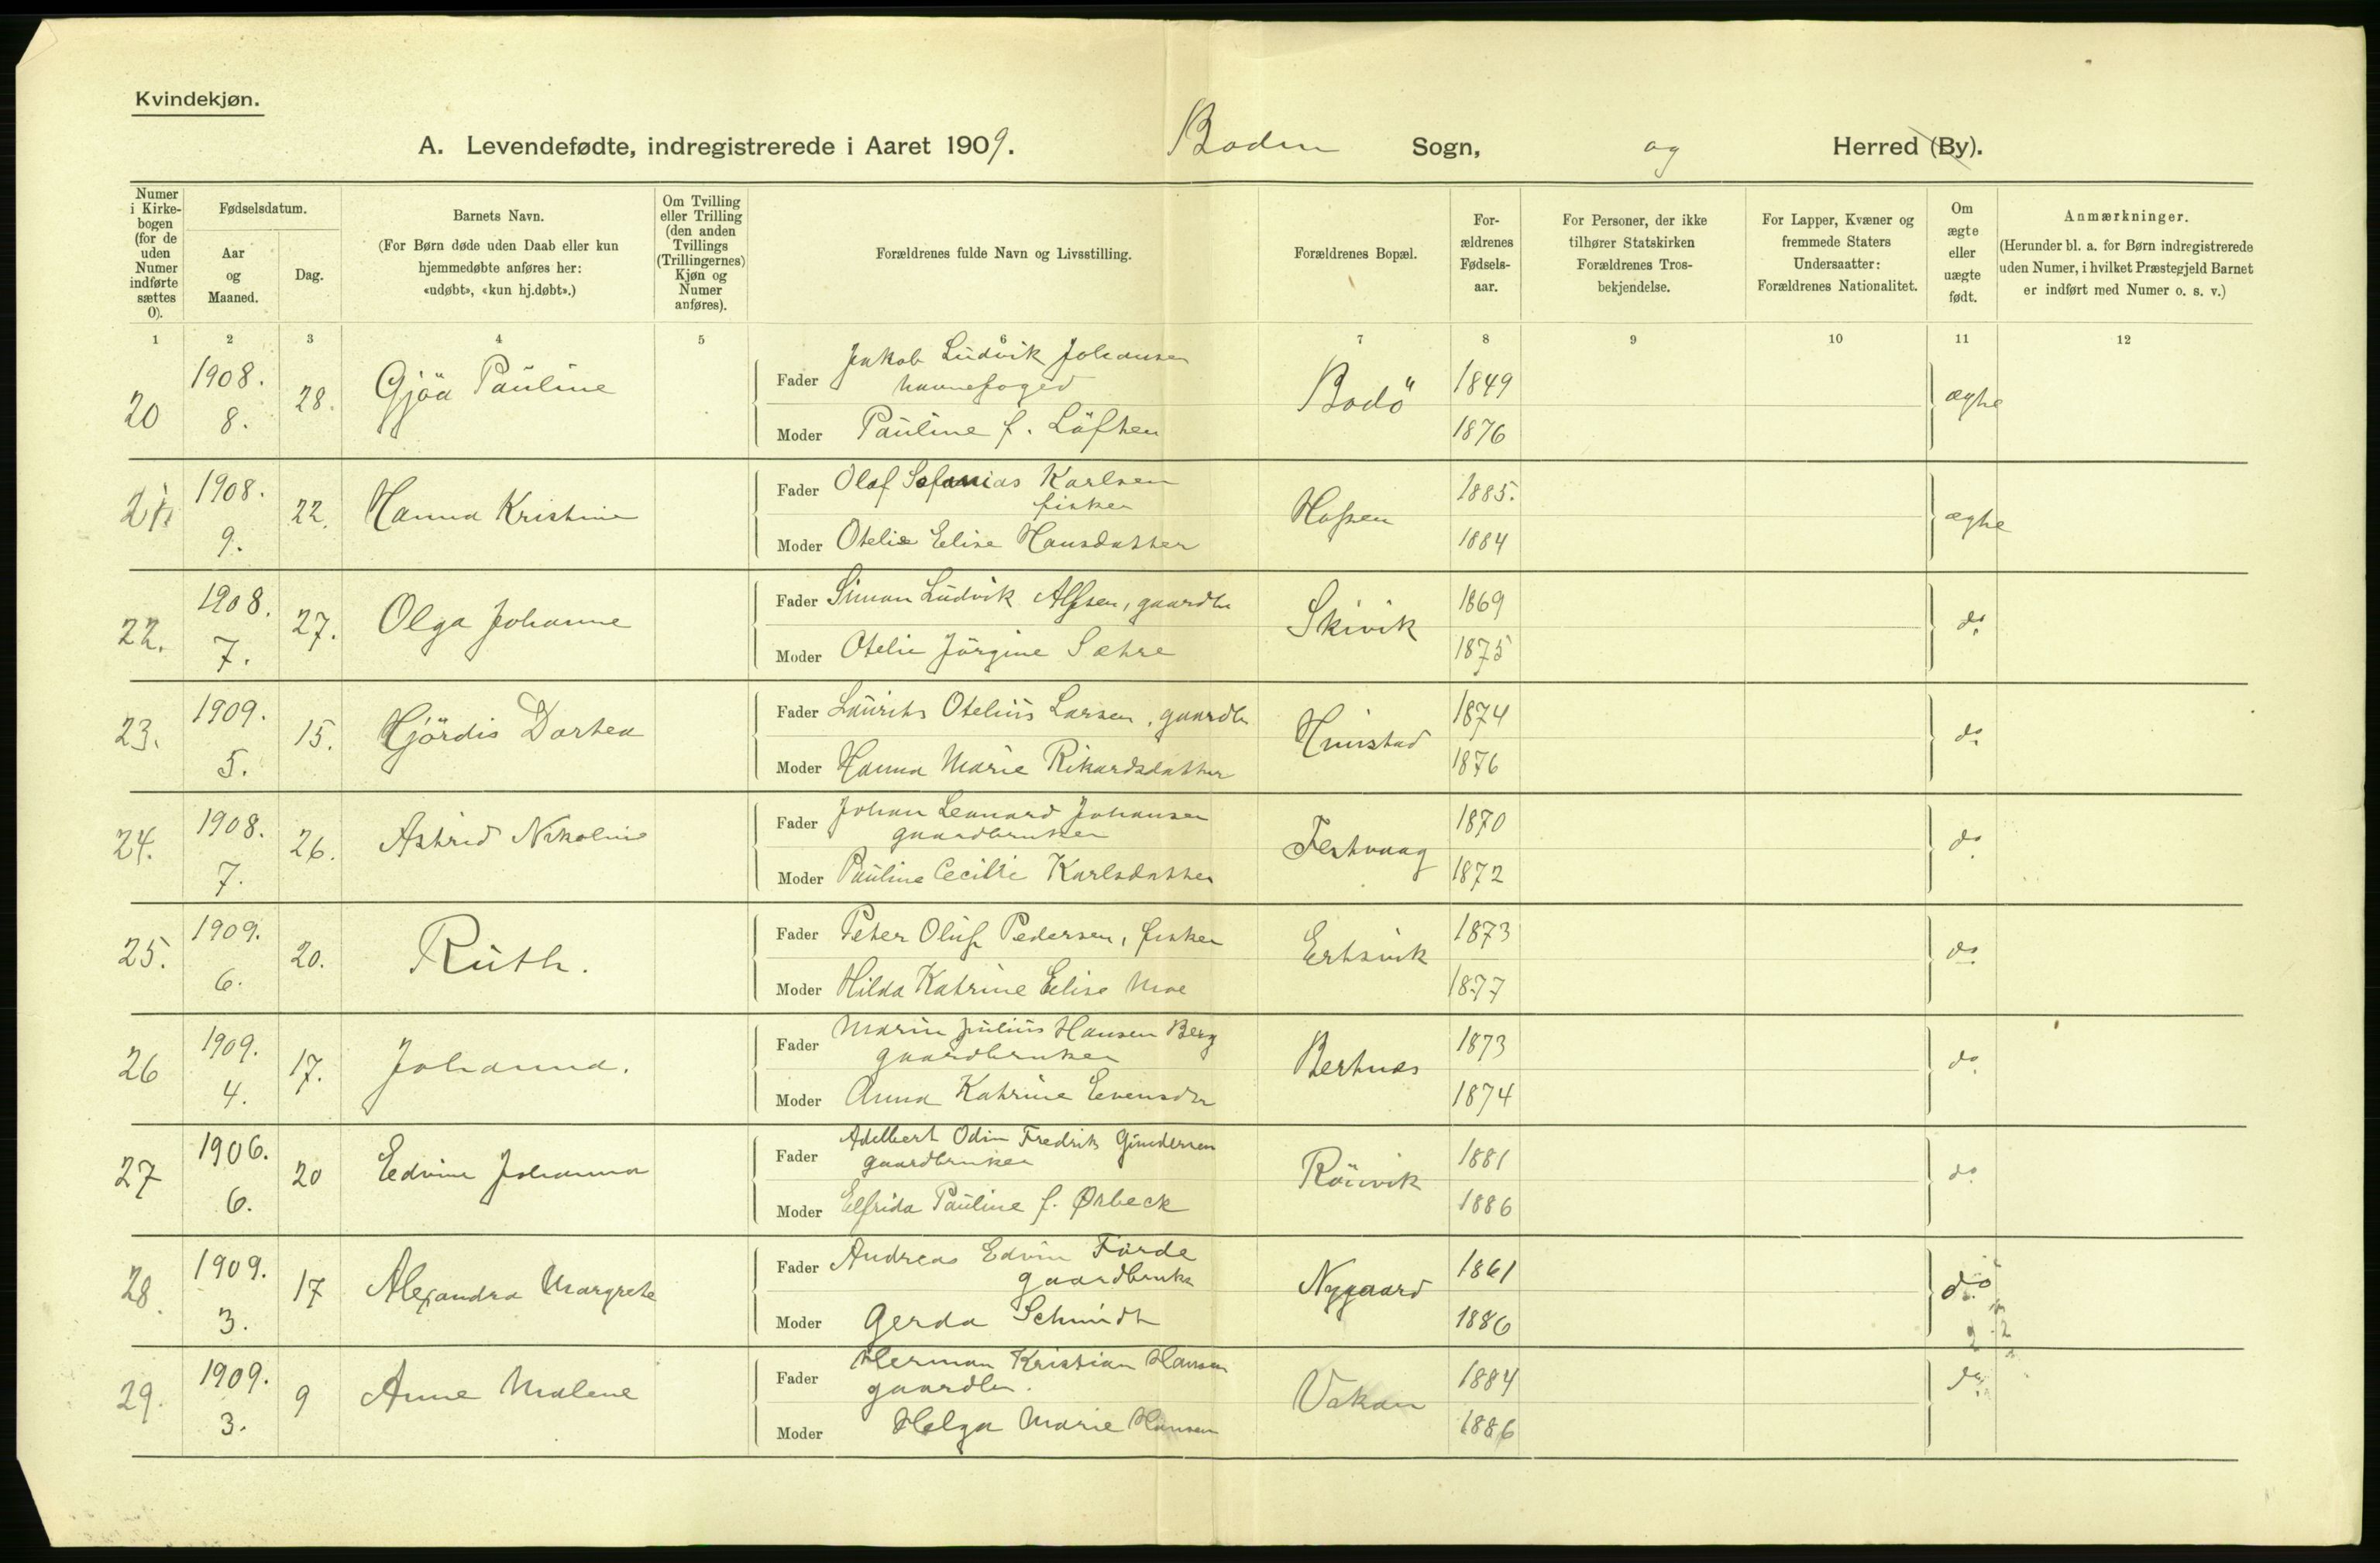 Kvindekjøn.
A. Levendefødte, indregistrerede i Aaret 1909. Bodin Sogn, og Herred (By).
Numer i Kirke-bogen (for de uden Numer indførte sættes 0).
Fødselsdatum.
Aar og Maaned.
Dag.
Barnets Navn.
(For Børn døde uden Daab eller kun
hjemmedøbte anføres her:
«udøbt», «kun hj.døbt».)
Om Tvilling eller Trilling (den anden Tvillings (Trillingernes) Kjøn og Numer anføres).
Forældrenes fulde Navn og Livsstilling.
Forældrenes Bopæl.
For-ældrenes Fødsels-aar.
For Personer, der ikke
tilhører Statskirken
Forældrenes Tros-
bekjendelse.
For Lapper, Kvæner og
fremmede Staters
Undersaatter:
Forældrenes Nationalitet.
Om ægte eller uægte født.
Anmærkninger.
(Herunder bl. a. for Børn indregistrerede
uden Numer, i hvilket Præstegjeld Barnet
er indført med Numer o. s. v.)
1 2 3 4 5 6 7 8 9 10 11 12
20 1908. 8. 28. Gjöa Pauline
Fader Jakob Ludvik Johansen
havnefoged
Moder Pauline f. Löften
Bodö 1849 1876 ægte
21. 1908. 9. 22. Hanna Kristine
Fader Olaf Sefanias Karlsen
fisker
Moder Otelie Elise Hansdatter
Hopen 1885. 1884 ægte
22. 1908. 7. 27. Olga Johanne
Fader Simon Ludvik Alfsen, gaardbr
Moder Otelie Jörgine Sætre
Skivik 1869 1875 do.
23. 1909. 5. 15. Hjördis Dortea
Fader Laurits Otelius Larsen, gaardbr
Moder Hanna Marie Rikardsdatter
Hunstad 1874 1876 do.
24. 1908. 7. 26. Astrid Nikoline
Fader Johan Leonard Johansen
gaardbruker
Moder Pauline Cecilie Karlsdatter
Festvaag 1870 1872 do.
25. 1909. 6. 20. Ruth.
Fader Peter Oluf Pedersen, fisker
Moder Hilda Katrine Elise Moe
Ertsvik 1873 1877 do.
26 1909. 4. 17. Johanna.
Fader Marin Julius Hansen Berg
gaardbruker
Moder Anna Katrine Evensdtr
Bertnes 1873 1874 do.
27 1906. 6. 20 Edvine Johanna
Fader Adelbert Odin Fredrik Gundersen
gaardbruker
Moder Elfrida Pauline f. Ørbeck
Rönvik 1881 1886 do.
28. 1909. 3. 17 Alexandra Margrete
Fader Andreas Edvin Förde
gaardbruker
Moder Gerda Schmidt
Nygaard 1861 1886 do.
29. 1909. 3. 9 Anne Malene
Fader Herman Kristian Hansen
gaardbr.
Moder Helga Marie Hansen
Vakan 1884 1886 do.